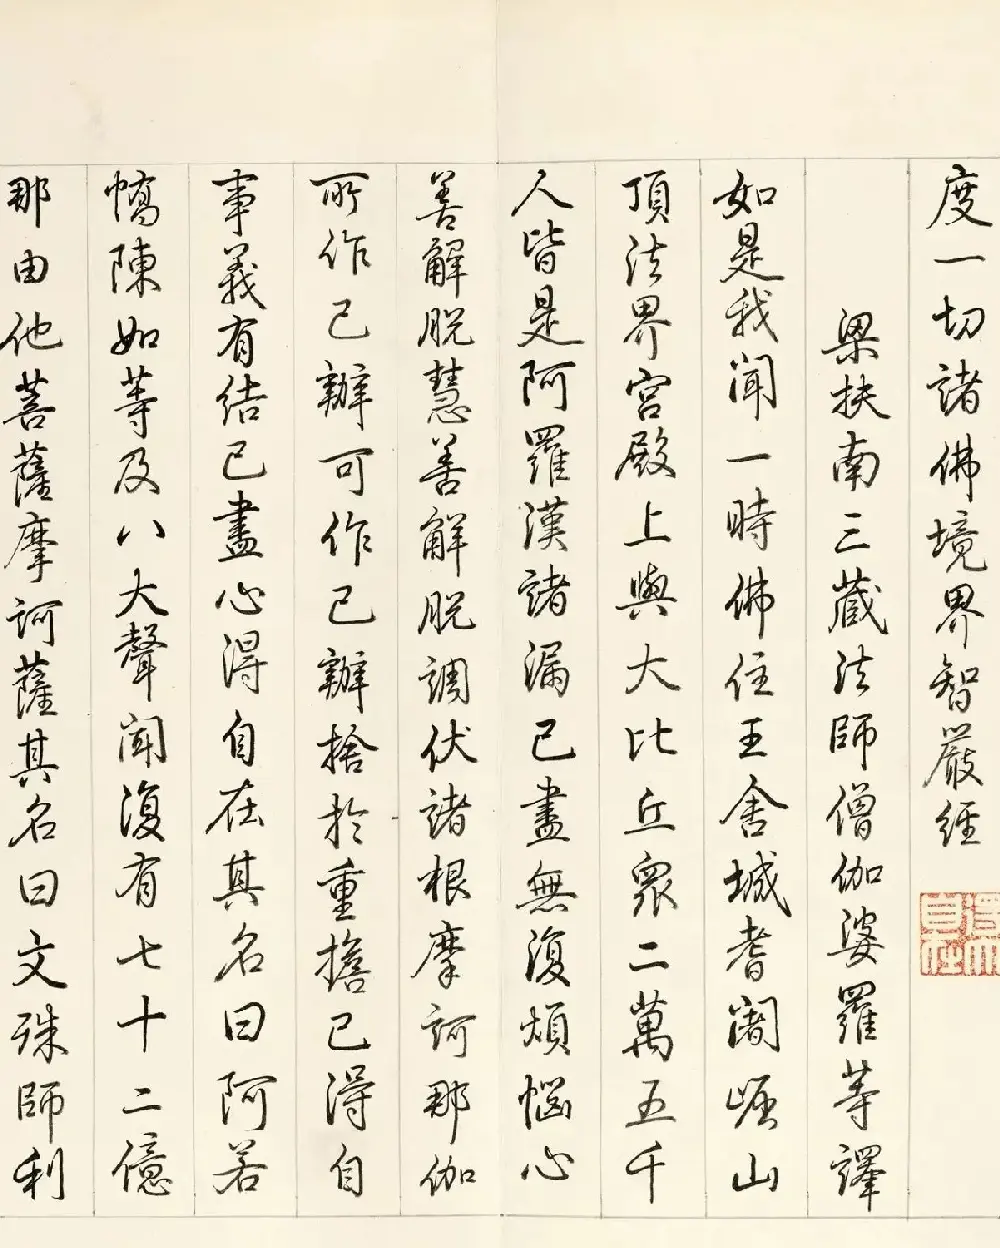 度一切諸佛境界智嚴經
梁扶南三藏法師僧伽婆羅等譯
如是我聞一時佛住王舍城耆闍崛山
頂法界宮殿上與大比丘眾二萬五千
人皆是阿羅漢諸漏已盡無復煩惱心
善解脫慧善解脫調伏諸根摩訶那伽
所作已辦可作已辦捨於重擔已得自
事義有結已盡心得自在其名曰阿若
憍陳如等及八大聲聞復有七十二億
那由他菩薩摩訶薩其名曰文殊師利